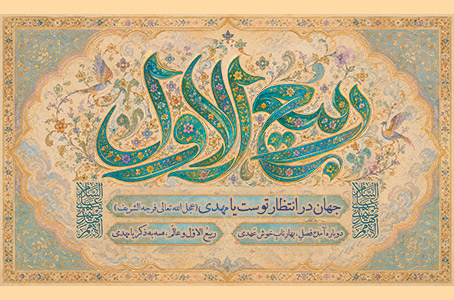 ربیع الاول
جهان در انتظار توست یا مهدی (عجل الله تعالی فرجه الشریف)
دوباره آمده فصل بهار ناب خوش عهدی
ربیع الاول و عالم همه به ذکر یا مهدی